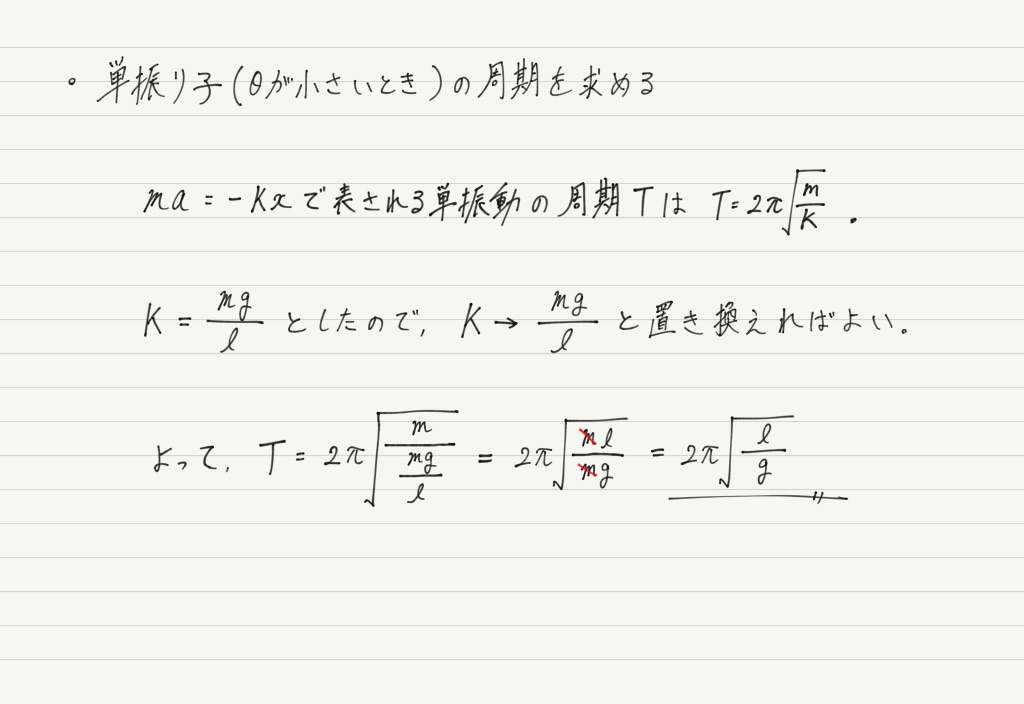 ・単振り子(θが小さいとき)の周期を求める
ma = -Kx で表される単振動の周期Tは T = 2π√(m/K) .
K = mg/l としたので, K → mg/l と置き換えればよい。
よって, T = 2π√(m/(mg/l)) = 2π√(ml/mg) = 2π√(l/g)